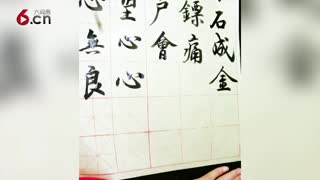 石成金
鏢痛
户會
里心心
心無良
六间房
6.cn